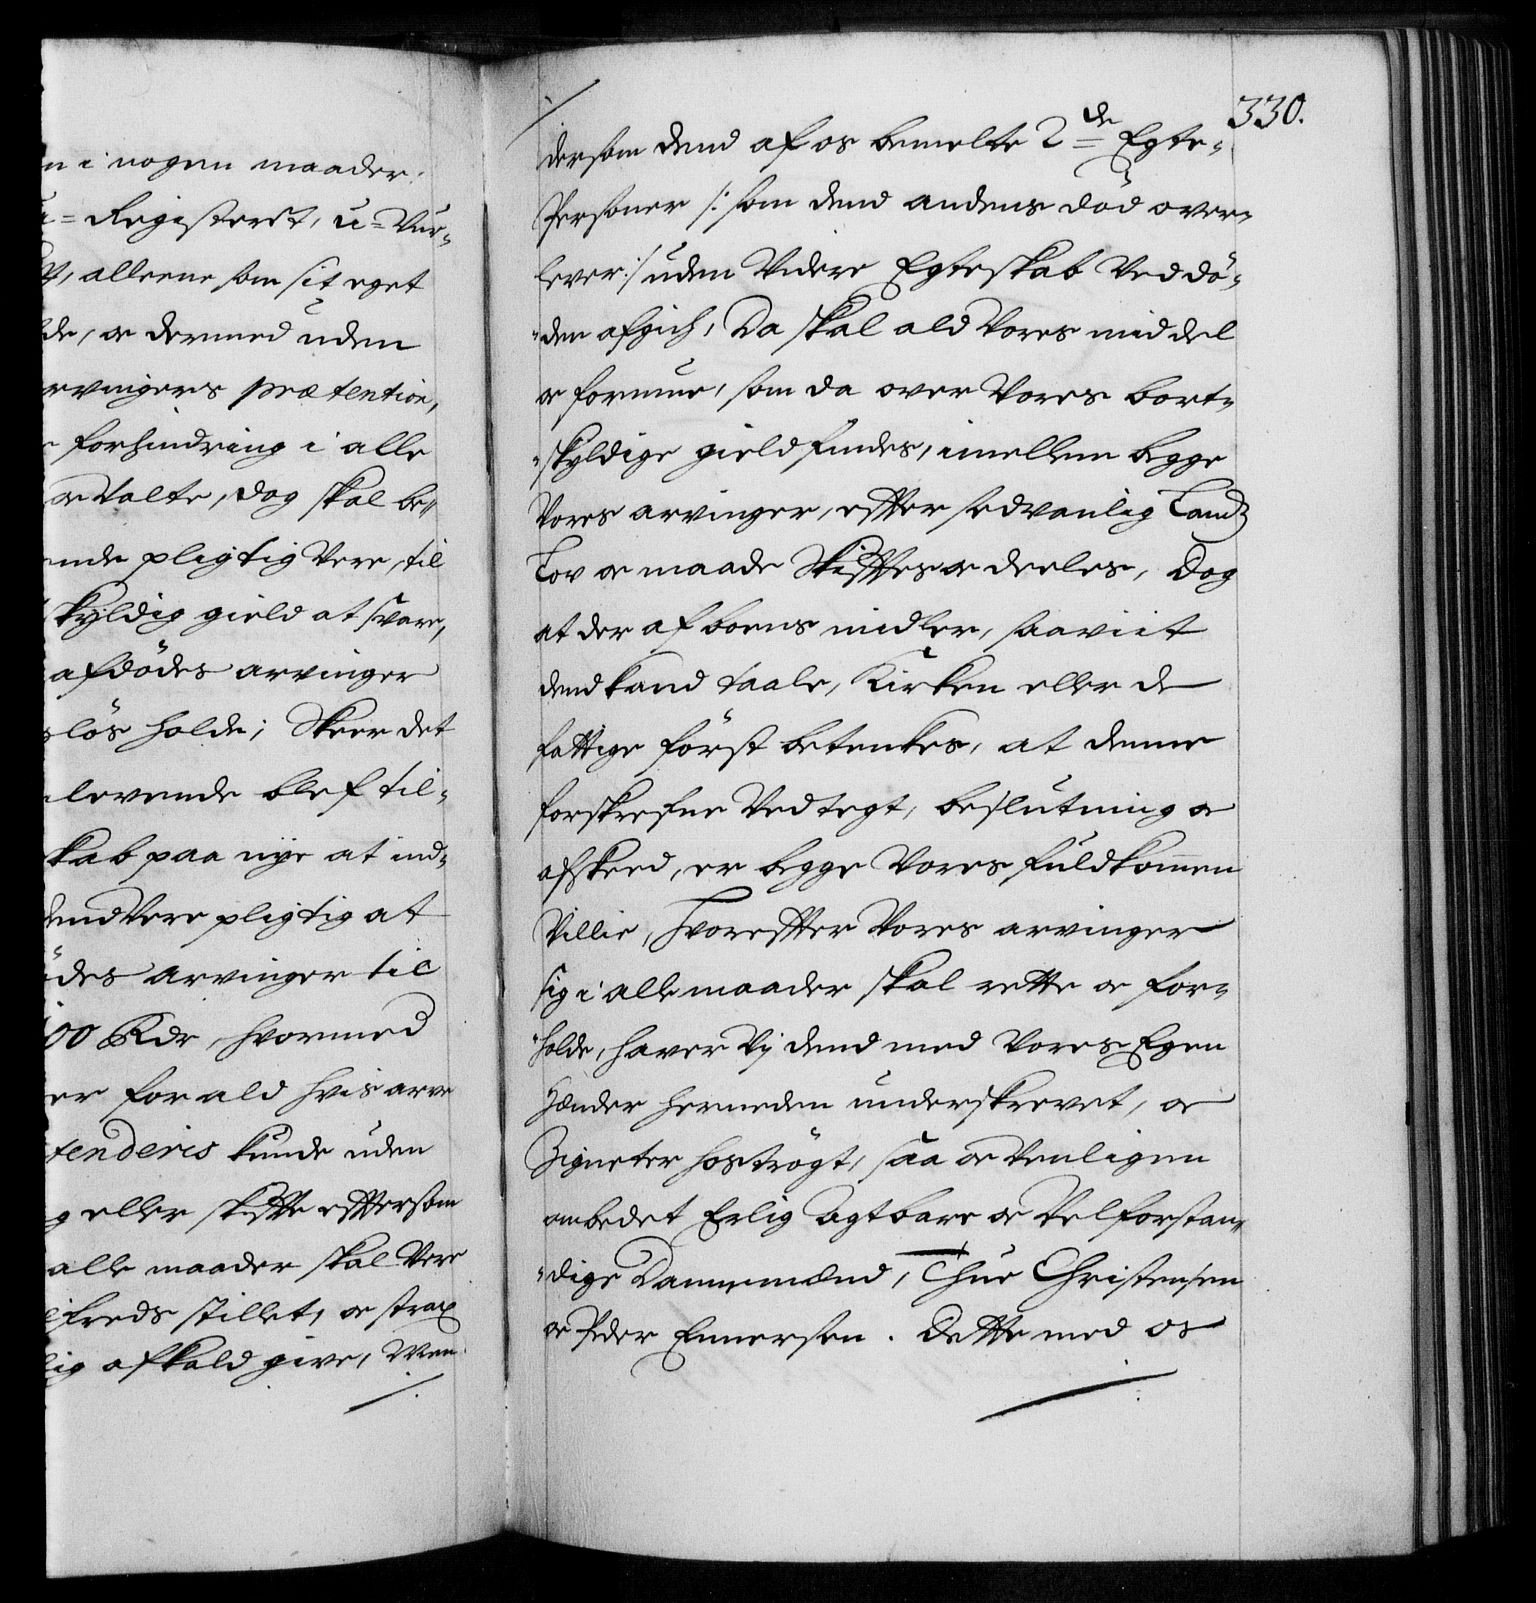 n i nogen maader.
u= Registeret, u=Vur=
allerne som sit eget
de, oc dermed uden
rvingers prætention,
forhindring i alle
oc Valte, dog skal be=
ende pligtig Vere, til
skyldig gield at svare,
afdödes arvinger
slös holde; Skeer det
levende blef til=
skab paa nye at ind=
dend Vere pligtig at
ödes arvinger til
00 Rdr, hvormed
er for ald hvis arve
tenderis kunde uden
g eller skiffte effttersom
alle maader skal Vere
lfreds stillet, oc strax
lig afkald give, Men
330.
dersom dend af os bemelte 2de Egte=
Personer /: som dend andens död over=
lever :/ uden Videre Egteskab Ved dö=
=den afgich, Da skal ald Vores middel
oc formue, som da over Vores bort=
=skyldige gield findes, imellem begge
Vores arvinger, effter sedvanlig Landz
Lov oc maade Skifftes oc deeles, Dog
at der af boens midler, saaviit
dend kand taale, Kirken eller de
fattige först betenkes, at denne
forskrefne Vedtegt, beslutning oc
afskeed, er begge Vores fuldkommen
Villie, hvoreffter Vores arvinger
sig i alle maader skal rette oc for=
=holde, haver Vj dend med Vores Egen
Hænder herneden underskrevet, oc
Zigneter hoströgt, saa oc Venligen
ombedet Erlig Agtbare oc Velforstan=
=dige Dannemænd, Thue Christensen
oc Peder Ennersen. Dette med os